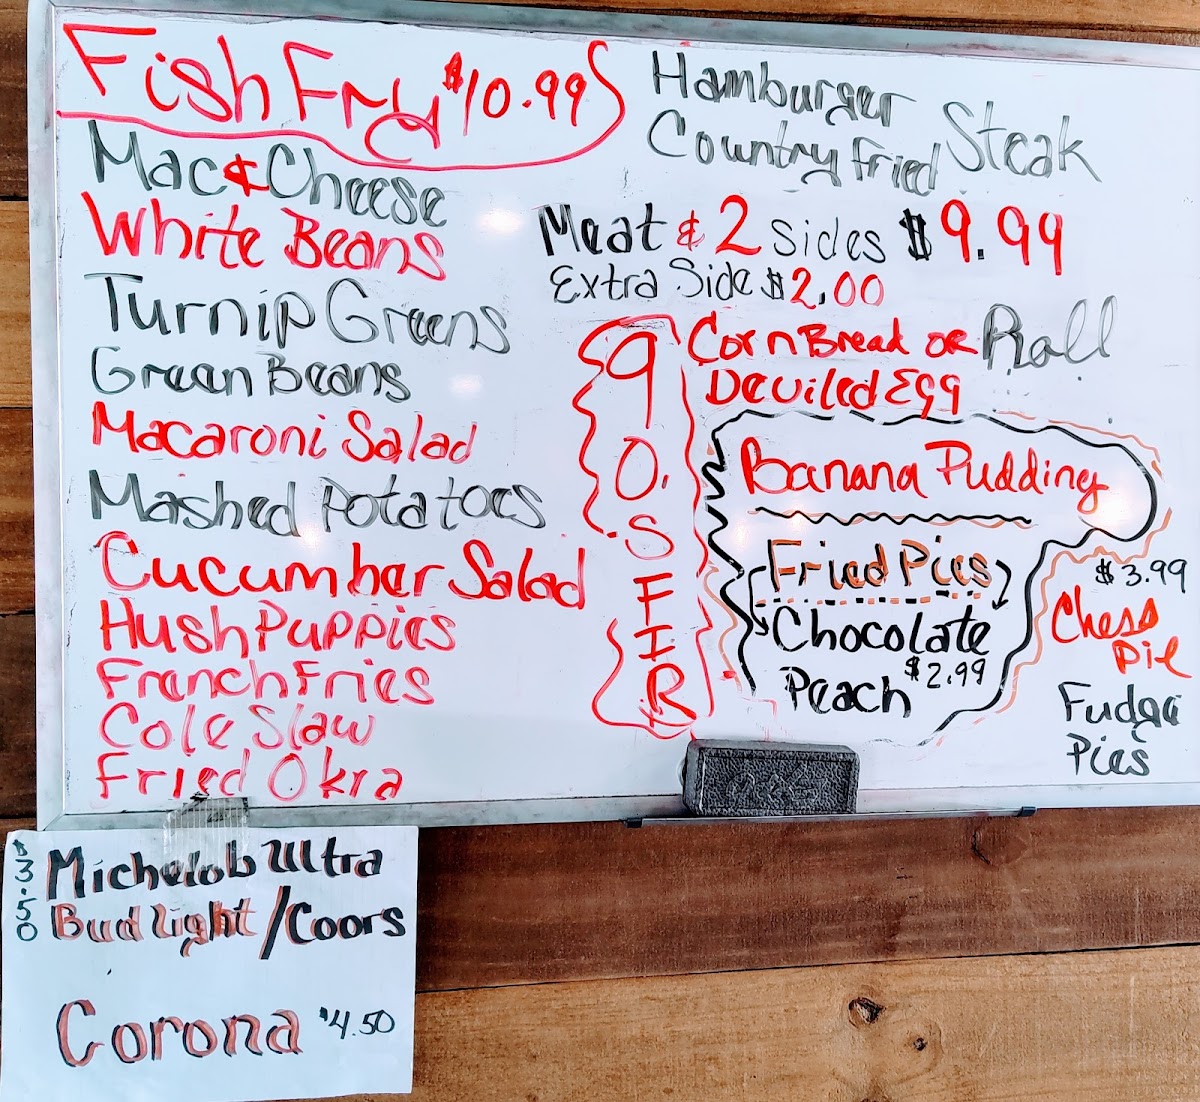 Fish Fry $10.99
Mac & Cheese
White Beans
Turnip Greens
Green Beans
Macaroni Salad
Mashed Potatoes
Cucumber Salad
Hush Puppies
French Fries
Cole Slaw
Fried Okra
Hamburger
Country Fried Steak
Meat & 2 sides $9.99
Extra Side $2.00
Corn Bread or Roll
Deviled Egg
Banana Pudding
Fried Pies
Chocolate
Peach $2.99
$3.99
Chess
Pie
Fudge
Pies
$3.50
Michelob Ultra
Bud light / Coors
Corona $4.50